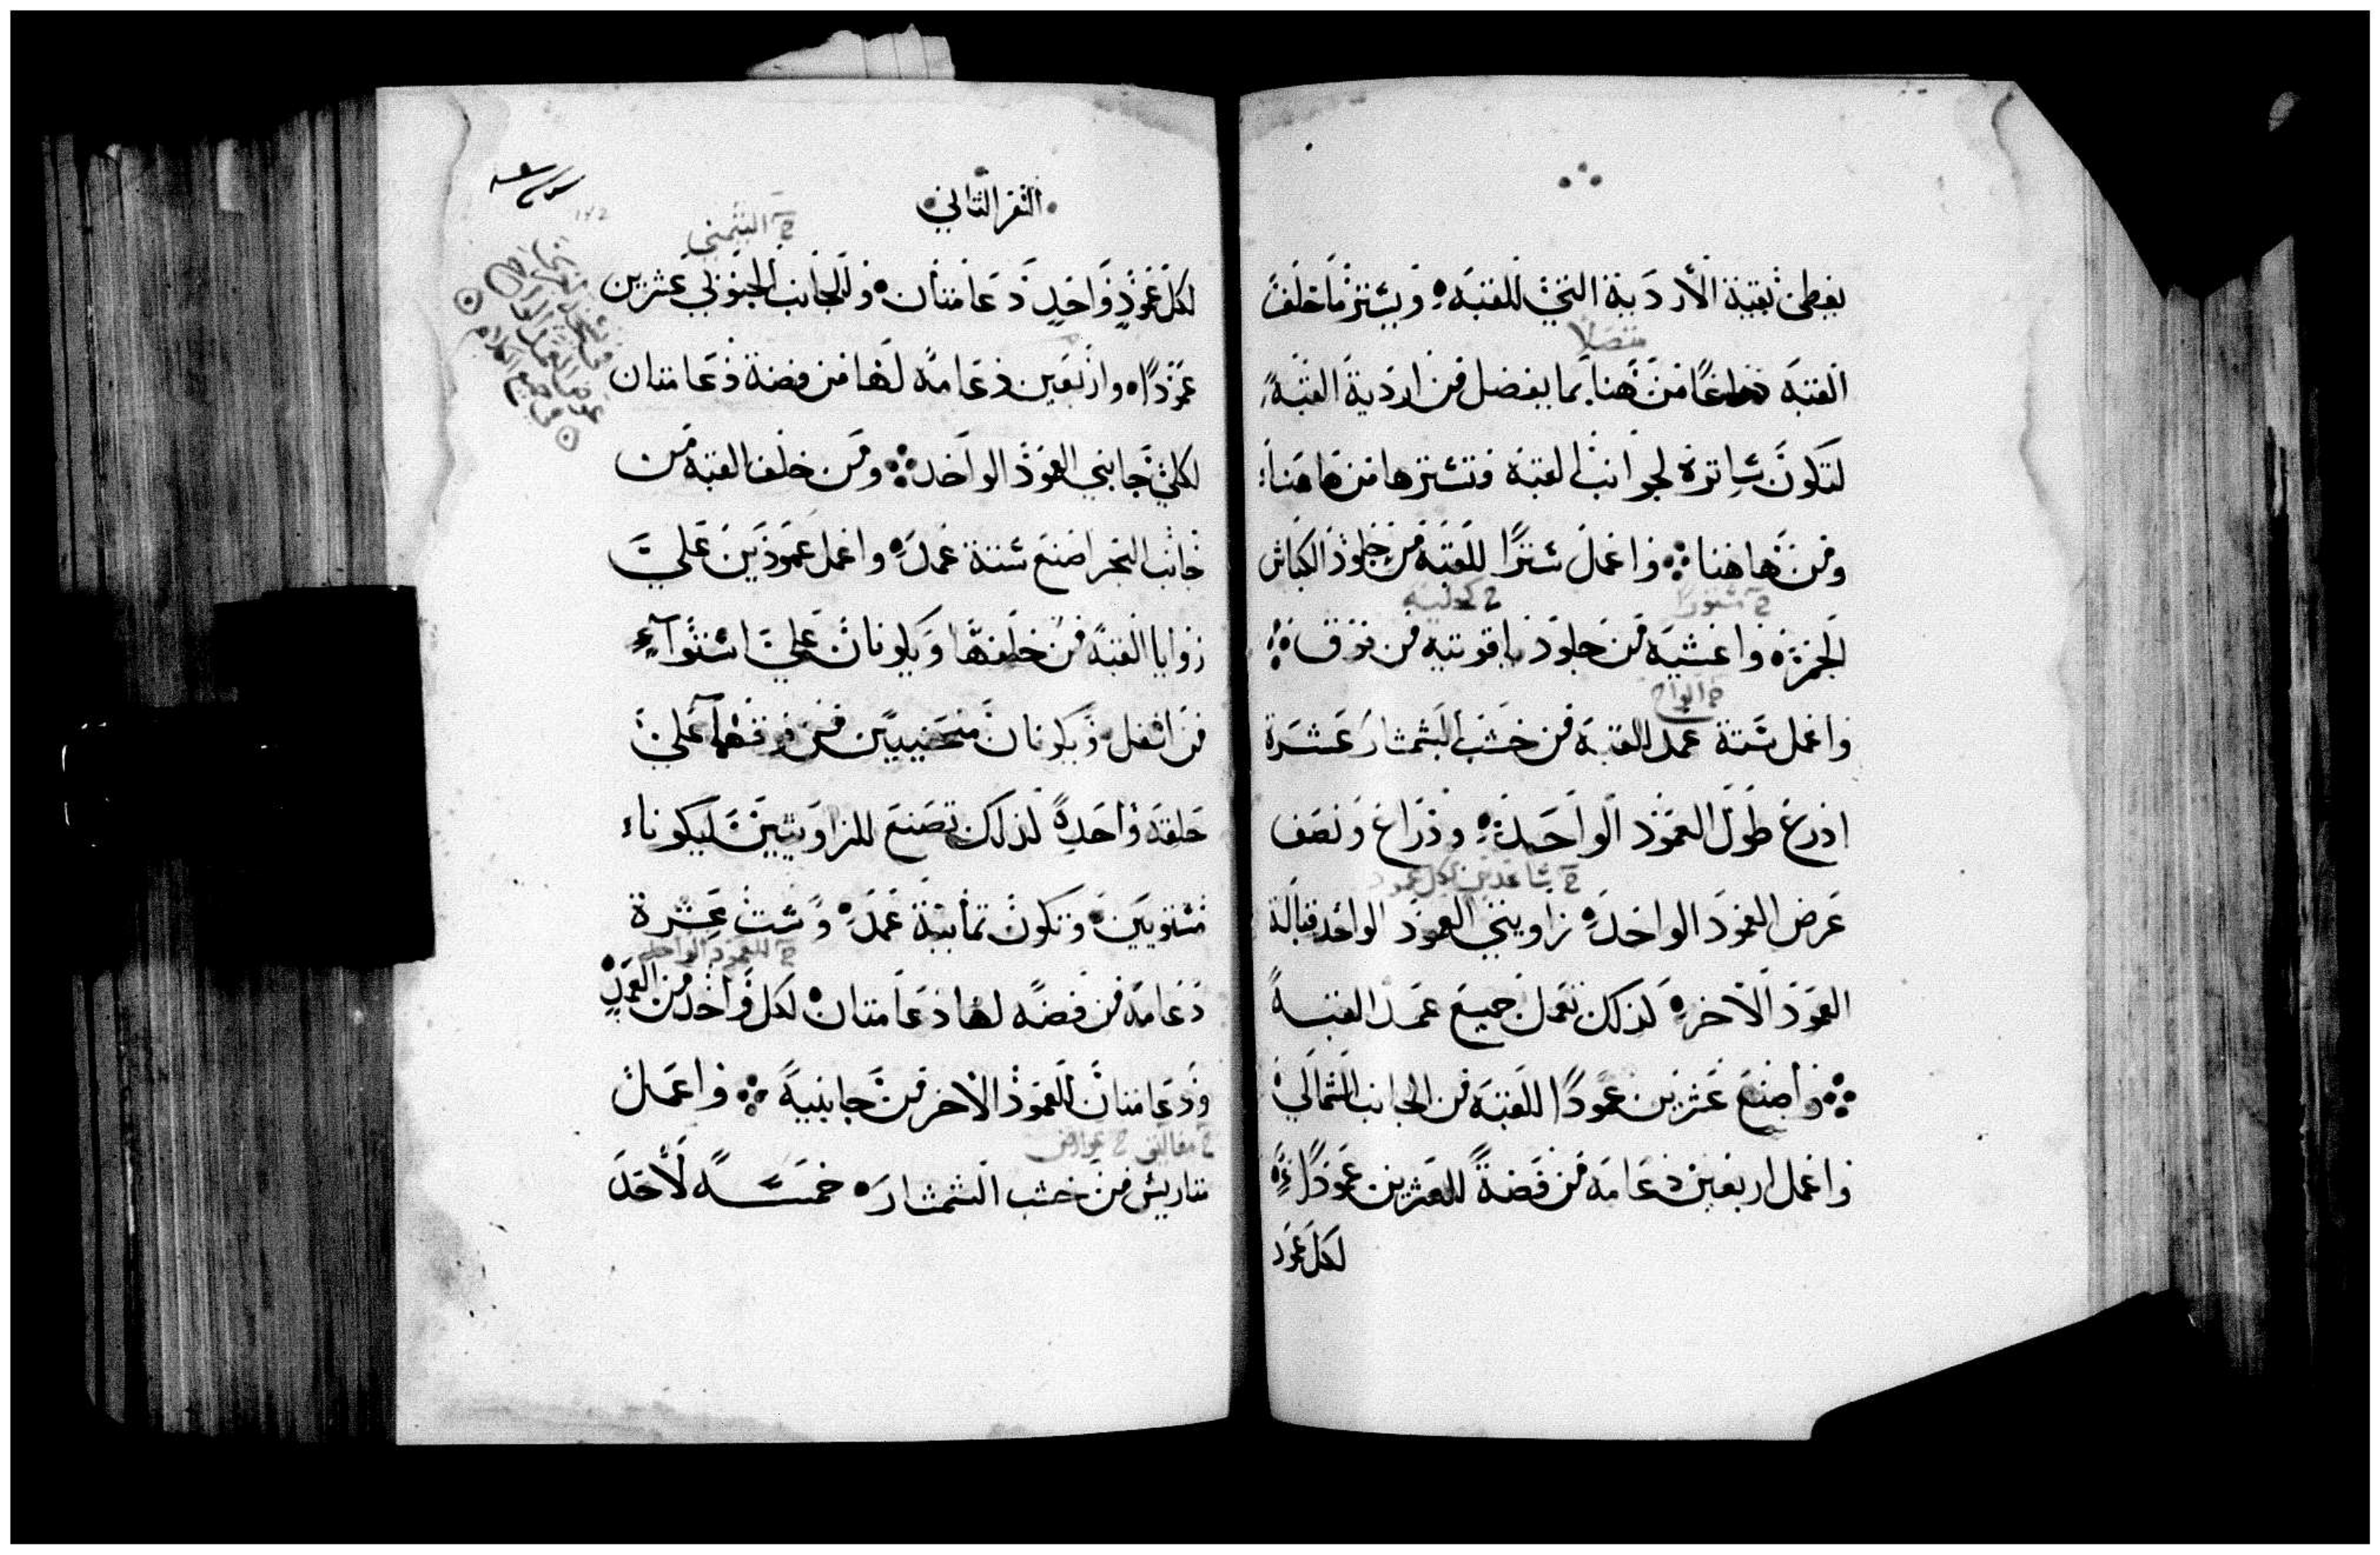 يغطي بقية الأردية التي للقبة ويستر ما خلف
متصلا
القبة ذراعًا من هنا بما يفضل من اردية القبة
لتكون ساترة لجوانب القبة وتسترها من هاهنا
ومن هاهنا واعمل سترًا للقبة من جلود الكباش
المحمرة واغشيه من جلود ياقوتيه من فوق
ح الواح
واعمل ستة عمد القبة من خشب الشمشار عشرة
اذرع طول العمود الواحد وذراع ونصف
ح ساعدين لكل عمود
عرض العمود الواحد زاويتي العمود الواحد قبالة
العمود الاخر لذلك تعمل جميع عمد القبة
واصنع عشرين عمودًا للقبة من الجانب الشمالي
واعمل اربعين دعامة من فضة للعشرين عمودًا
لكل عمود
السفر الثاني
لكل عمود واحد دعامتان وللجانب الجنوبي عشرين
عمودًا واربعين دعامة لها من فضة دعامتان
لكلي جانبي العمود الواحد ومن خلف القبة من
جانب البحر اصنع ستة عمد واعمل عمودين علي
زوايا القبة من خلفها ويكونان علي استواء
من اسفل ويكونان منحنيين من فوقهما علي
حلقة واحدة لذلك تصنع للزاويتين ليكونا
مستويين وتكون ثمانية عمد وست عشرة
ح للعمود الواحد
دعامة من فضة لها دعامتان لكل واحد من العمد
ودعامتان للعمود الاخر من جانبيه واعمل
ح مغاليق ح عوارض
متاريس من خشب الشمشار خمسة لأحد